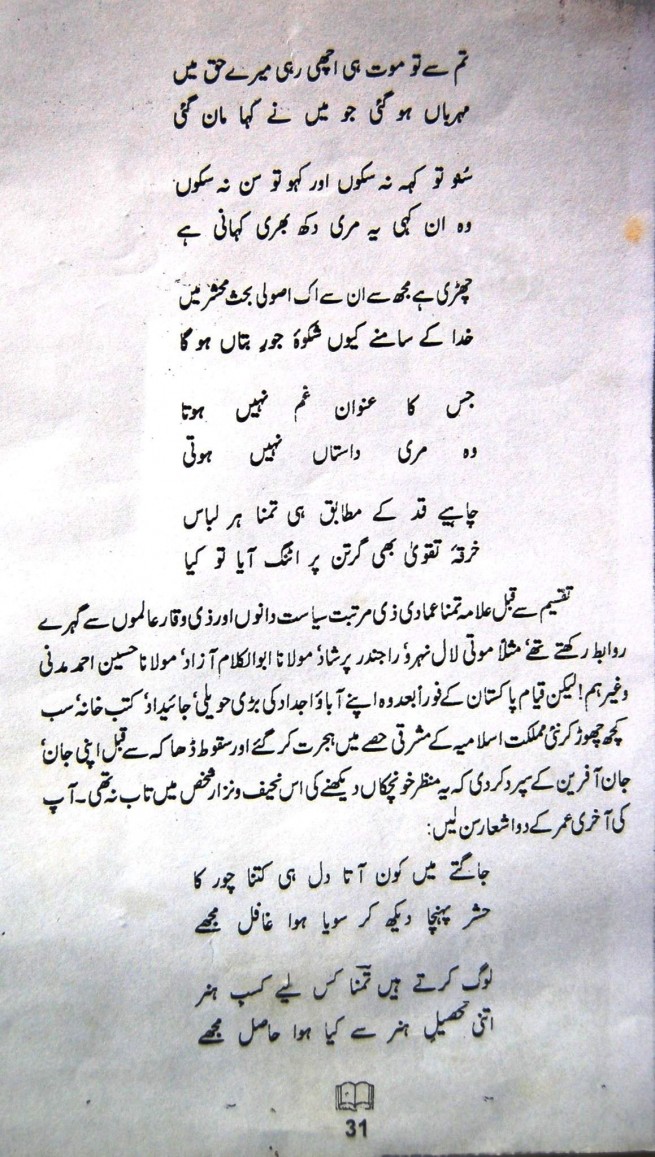 تم سے تو موت ہی اچھی رہی میرے حق میں
مہرباں ہو گئی جو میں نے کہا مان گئی
سُنو تو کہہ نہ سکوں اور کہو تو سن نہ سکوں
وہ ان کہی یہ مری دکھ بھری کہانی ہے
چھڑی ہے مجھ سے ان سے اک اصولی بحث محشر میں
خدا کے سامنے کیوں شکوۂ جورِ بتاں ہو گا
جس کا عنوان غم نہیں ہوتا
وہ مری داستاں نہیں ہوتی
چاہیے قد کے مطابق ہی تمنا ہر لباس
خرقۂ تقویٰ بھی گرتن پر اٹنگ آیا تو کیا
تقسیم سے قبل علامہ تمنا عمادی ذی مرتبت سیاست دانوں اور ذی وقار عالموں سے گہرے
روابط رکھتے تھے‘ مثلاً موتی لال نہرو‘ راجندر پرشاد‘ مولانا ابوالکلام آزاد‘ مولانا حسین احمد مدنی
وغیرہم! لیکن قیام پاکستان کے فوراً بعد وہ اپنے آباؤ اجداد کی بڑی حویلی‘ جائیداد‘ کتب خانہ‘ سب
کچھ چھوڑ کر نئی مملکت اسلامیہ کے مشرقی حصے میں ہجرت کر گئے اور سقوط ڈھاکہ سے قبل اپنی جان‘
جان آفرین کے سپرد کر دی کہ یہ منظر خونچکاں دیکھنے کی اس نحیف و نزار شخص میں تاب نہ تھی۔ آپ
کی آخری عمر کے دو اشعار سن لیں:
جاگتے میں کون آتا دل ہی کتنا چور کا
حشر پہنچا دیکھ کر سویا ہوا غافل مجھے
لوگ کرتے ہیں تمنّا کس لیے کسبِ ہنر
اتنی تحصیلِ ہنر سے کیا ہوا حاصل مجھے
31